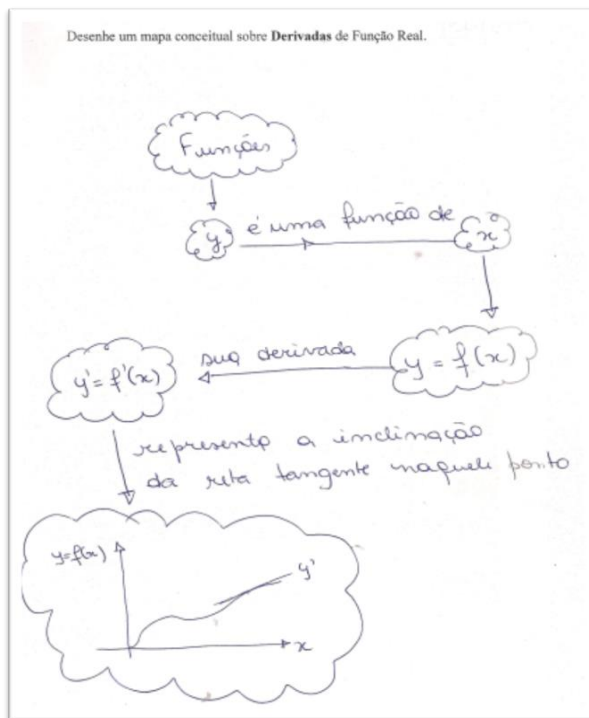 Desenhe um mapa conceitual sobre Derivadas de Função Real.
Funções
y é uma função de x
y = f(x)
sua derivada
y' = f'(x)
representa a inclinação
da reta tangente naquele ponto
y=f(x)
y'
x